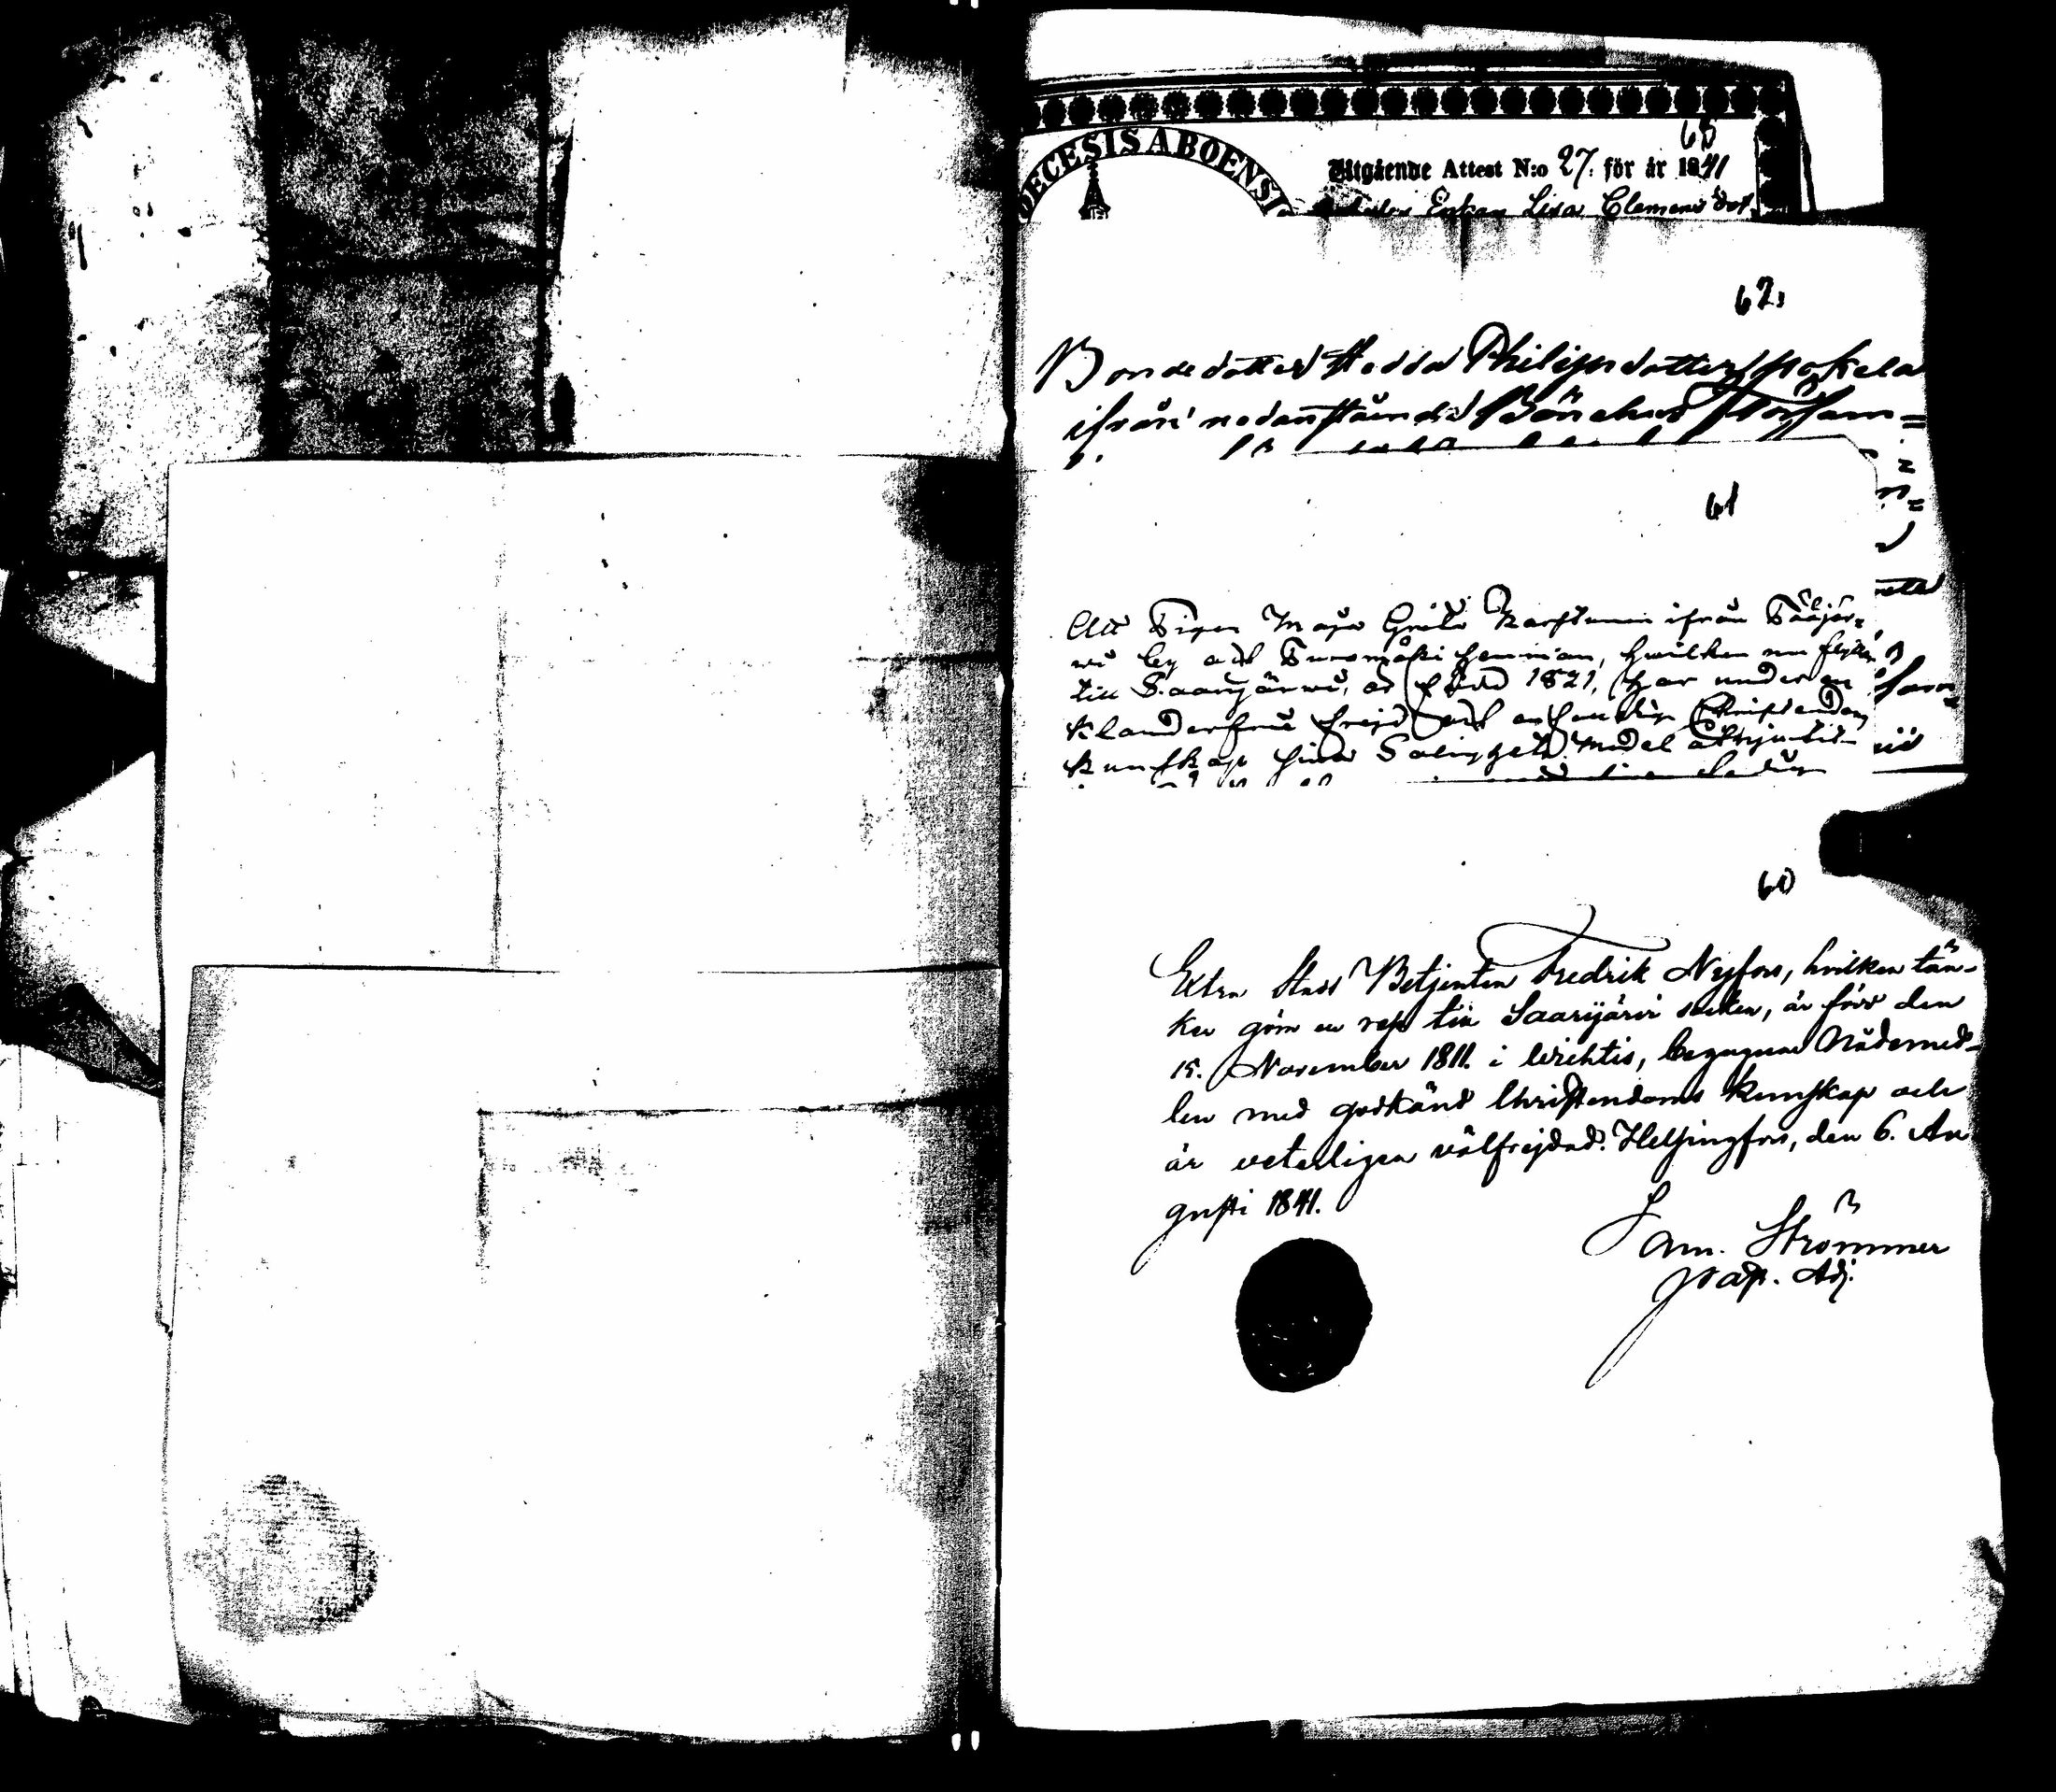 63
DIOECESIS ABOENSI
Utgående Attest N:o 27. för år 1841
Enkan Lisa Clemens dot.
62.
Bondedotter Hedda Philipsdotter Hokela
ifrån nedanstående Bönehus Försam=
61
Att Pigan Maja Greta Karstunen ifrån Pääjär-
wi by och hemman, hwilken nu flyttar
till Saarijärwi, är född 1821, har under en
klanderfri frejd och Christendoms
kunskap sina Salighets Medel
60
Extra Stads Betjenten Fredrik Nyfors, hvilken tän-
ker göra en resa till Saarijärvi socken, är född den
15. November 1811. i Wichtis, begagnar Nådemed-
len med godkänd Christendoms kunskap och
är veterligen välfrejdad. Helsingfors, den 6. Au
gusti 1841.
Sam. Strömmer
Past. Adj.